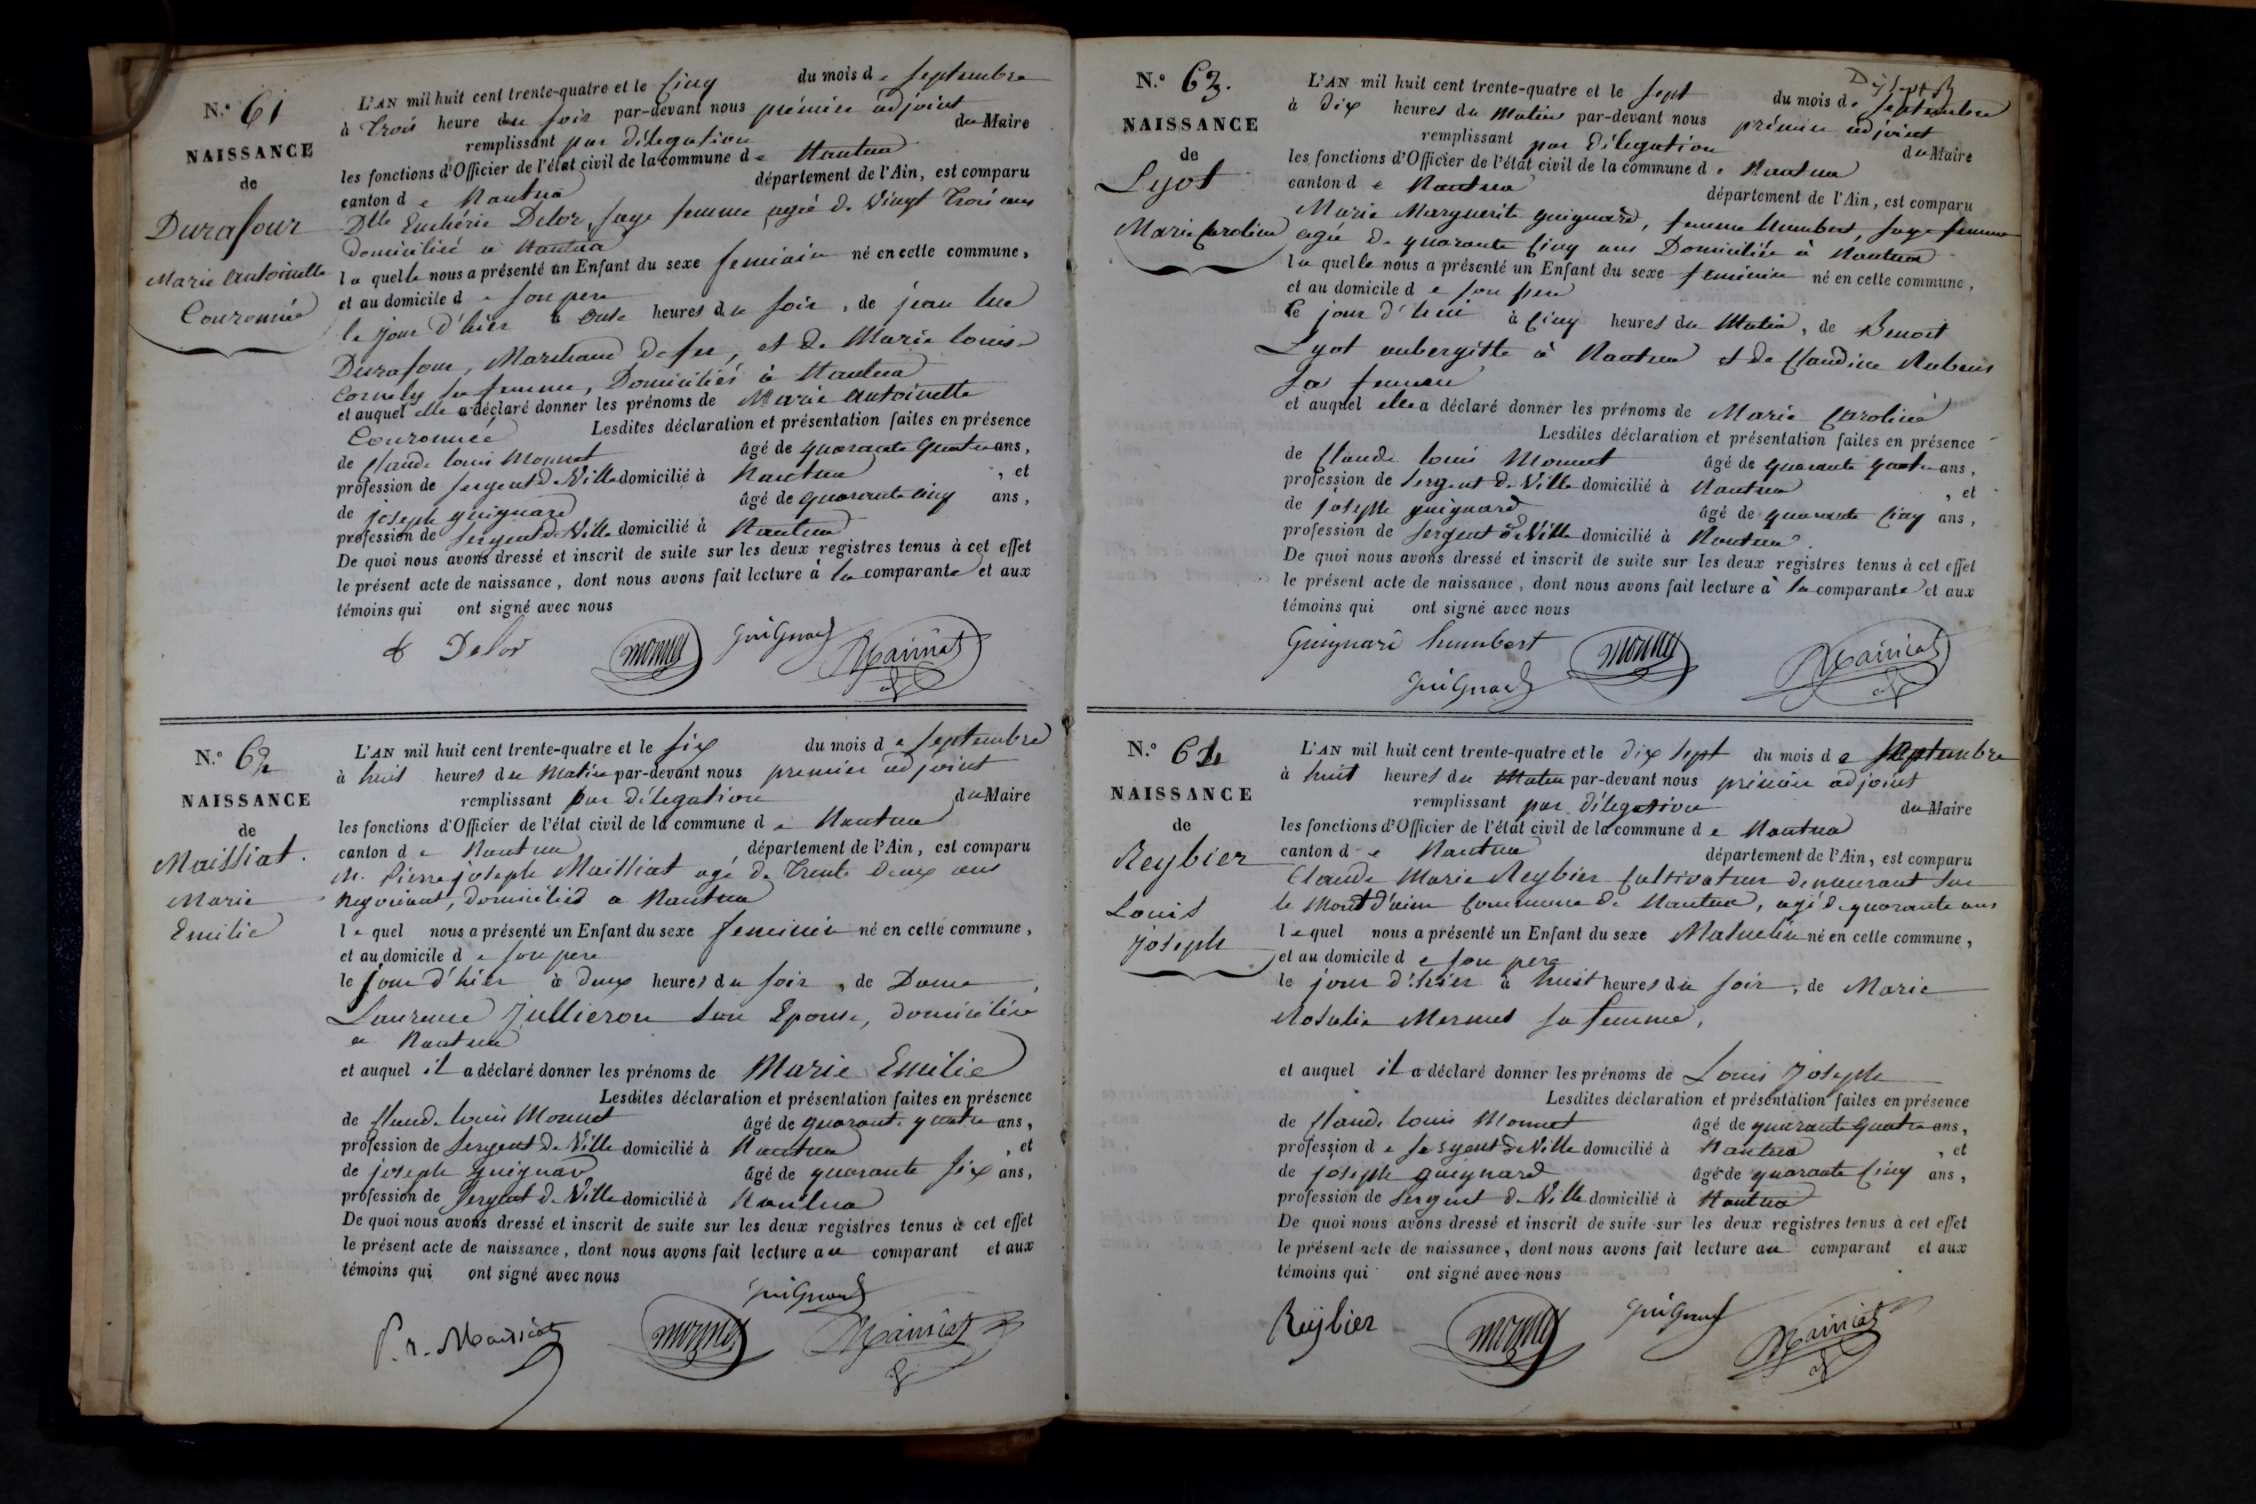 N.o 61
NAISSANCE
de
Durafour
Marie Antoinette
Couronnée
L'AN mil huit cent trente-quatre et le Cinq du mois de Septembre
à trois heure du soir par-devant nous prémier adjoint
remplissant par délégation du Maire
les fonctions d'Officier de l'état civil de la commune de Nantua
canton de Nantua département de l'Ain, est comparu
Dlle Euchérie Delor, sage femme agée de Vingt trois ans
domiciliée a Nantua
laquelle nous a présenté un Enfant du sexe feminin né en cette commune,
et au domicile de son pere
le jour d'hier à onze heures du soir, de jean luc
Durafour, Marchand de fer, et de Marie louise
Cornely sa femme, Domiciliés à Nantua
et auquel elle a déclaré donner les prénoms de Marie Antoinette
Couronnée Lesdites déclaration et présentation faites en présence
de Claude louis Monnet âgé de quarante quatre ans,
profession de sergent de Ville domicilié à Nantua, et
de joseph guignard âgé de quarante cinq ans,
profession de sergent de Ville domicilié à Nantua
De quoi nous avons dressé et inscrit de suite sur les deux registres tenus à cet effet
le présent acte de naissance, dont nous avons fait lecture à la comparante et aux
témoins qui ont signé avec nous
Delor Monnet GuiGnard Mainiat
N.o 62
NAISSANCE
de
Maissiat.
Marie
Emilie
L'AN mil huit cent trente-quatre et le six du mois de Septembre
à huit heures du Matin par-devant nous premier adjoint
remplissant par délégation du Maire
les fonctions d'Officier de l'état civil de la commune de Nantua
canton de Nantua département de l'Ain, est comparu
M. Pierre joseph Maissiat agé de Trente Deux ans
Negociant, domicilié a Nantua
lequel nous a présenté un Enfant du sexe feminin né en cette commune,
et au domicile de son pere
le jour d'hier à deux heures du soir, de Dame
Laurence Jullieron son Epouse, domiciliée
a Nantua
et auquel il a déclaré donner les prénoms de Marie Emilie
Lesdites déclaration et présentation faites en présence
de Claude louis Monnet âgé de quarante quatre ans,
profession de Sergent de Ville domicilié à Nantua, et
de joseph guignard âgé de quarante six ans,
profession de Sergent de Ville domicilié à Nantua
De quoi nous avons dressé et inscrit de suite sur les deux registres tenus à cet effet
le présent acte de naissance, dont nous avons fait lecture au comparant et aux
témoins qui ont signé avec nous
GuiGnard
P. J. Maissiat Monnet Mainiat
N.o 63.
NAISSANCE
de
Lyot
Marie Caroline
L'AN mil huit cent trente-quatre et le sept du mois de Septembre
à dix heures du Matin par-devant nous prémier adjoint
remplissant par délégation du Maire
les fonctions d'Officier de l'état civil de la commune de Nantua
canton de Nantua département de l'Ain, est comparu
Marie Marguerite guignard, femme humbert, sage femme
agée de quarante cinq ans Domiciliée à Nantua
laquelle nous a présenté un Enfant du sexe feminin né en cette commune,
et au domicile de son pere
Ce jour d'hui à cinq heures du Matin, de Benoit
Lyot aubergiste à Nantua et de Claudine Rubens
sa femme
et auquel elle a déclaré donner les prénoms de Marie Caroline
Lesdites déclaration et présentation faites en présence
de Claude louis Monnet âgé de quarante quatre ans,
profession de Sergent de Ville domicilié à Nantua, et
de joseph guignard âgé de quarante Cinq ans,
profession de Sergent de Ville domicilié à Nantua
De quoi nous avons dressé et inscrit de suite sur les deux registres tenus à cet effet
le présent acte de naissance, dont nous avons fait lecture à la comparante et aux
témoins qui ont signé avec nous
Guignard humbert Monnet Mainiat
GuiGnard
N.o 64
NAISSANCE
de
Reybier
Louis
Joseph
L'AN mil huit cent trente-quatre et le dix sept du mois de Septembre
à huit heures du Matin par-devant nous prémier adjoint
remplissant par délégation du Maire
les fonctions d'Officier de l'état civil de la commune de Nantua
canton de Nantua département de l'Ain, est comparu
Claude Marie Reybier Cultivateur demeurant sur
le Mont d'ain Commune de Nantua, agé de quarante ans
lequel nous a présenté un Enfant du sexe Masculin né en cette commune,
et au domicile de son pere
le jour d'hier à huit heures du soir, de Marie
Rosalie Mermet sa femme,
et auquel il a déclaré donner les prénoms de Louis Joseph
Lesdites déclaration et présentation faites en présence
de Claude louis Monnet âgé de quarante quatre ans,
profession de Sergent de Ville domicilié à Nantua, et
de joseph guignard âgé de quarante Cinq ans,
profession de Sergent de Ville domicilié à Nantua
De quoi nous avons dressé et inscrit de suite sur les deux registres tenus à cet effet
le présent acte de naissance, dont nous avons fait lecture au comparant et aux
témoins qui ont signé avec nous
Reybier Monnet GuiGnard Mainiat